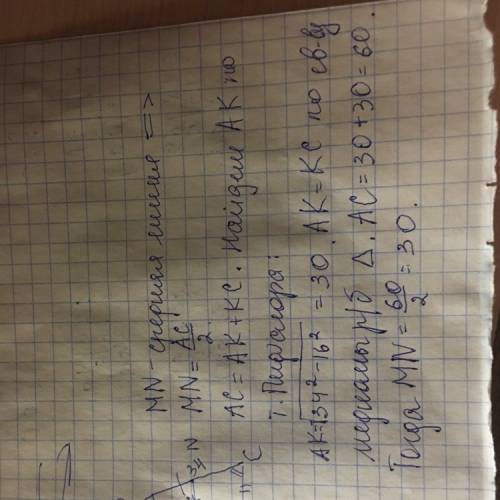 MN - средняя линия =>
MN = AC/2
AC = AK + KC. Найдём AK по
т. Пифагора:
AK = √34² - 16² = 30. AK = KC по св-ву
медианы р/б Δ. AC = 30 + 30 = 60.
Тогда MN = 60/2 = 30.
N
C